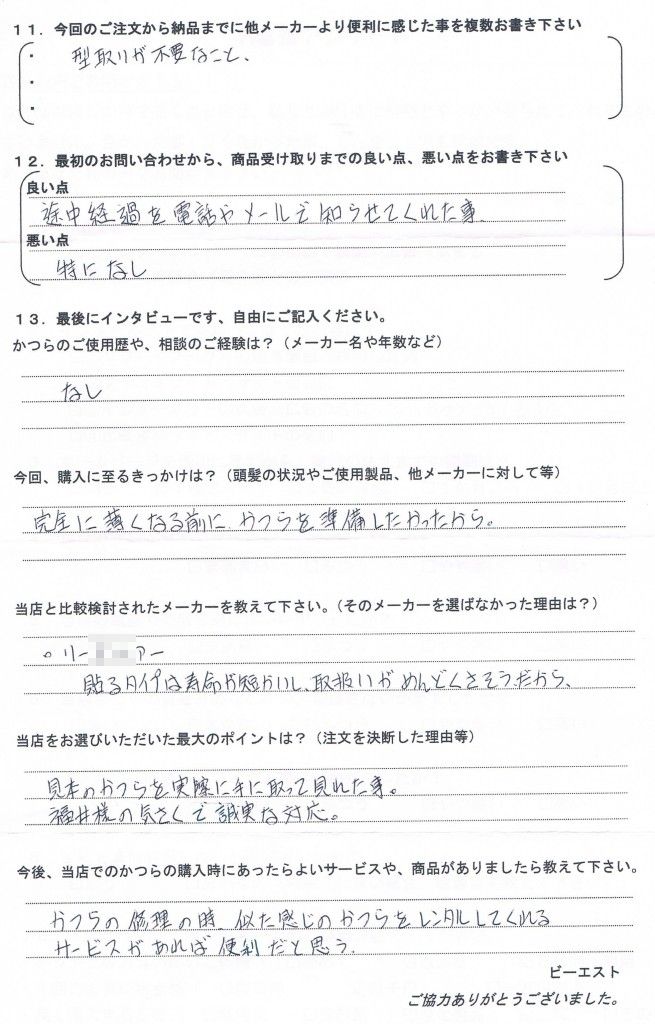 11．今回のご注文から納品までに他メーカーより便利に感じた事を複数お書き下さい
・ 型取りが不要なこと、
・
・
12．最初のお問い合わせから、商品受け取りまでの良い点、悪い点をお書き下さい
良い点
途中経過を電話やメールで知らせてくれた事、
悪い点
特になし
13．最後にインタビューです、自由にご記入ください。
かつらのご使用歴や、相談のご経験は？（メーカー名や年数など）
なし
今回、購入に至るきっかけは？（頭髪の状況やご使用製品、他メーカーに対して等）
完全に薄くなる前に、かつらを準備したかったから。
当店と比較検討されたメーカーを教えて下さい。（そのメーカーを選ばなかった理由は？）
○リー アー
貼るタイプは寿命が短かいし、取扱いがめんどくさそうだから、
当店をお選びいただいた最大のポイントは？（注文を決断した理由等）
見本のかつらを実際に手に取って見れた事。
福井様の気さくで誠実な対応。
今後、当店でのかつらの購入時にあったらよいサービスや、商品がありましたら教えて下さい。
かつらの修理の時、似た感じのかつらをレンタルしてくれる
サービスがあれば便利だと思う、
ビーエスト
ご協力ありがとうございました。